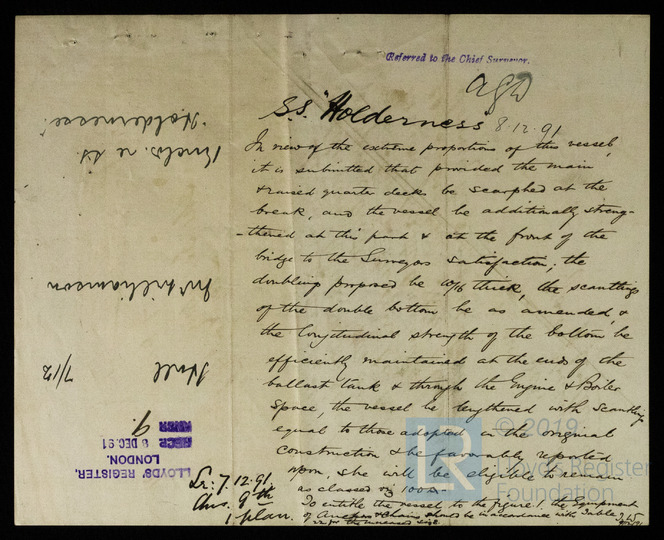 Referred to the Chief Surveyor.
S.S. "Holderness" 8.12.91
In view of the extreme proportions of this vessel,
it is submitted that provided the main
& raised quarter decks be scarphed at the
break, and the vessel be additionally streng-
-thened at this part & at the front of the
bridge to the Surveyors satisfaction; the
doubling proposed be thick, the scantlings
of the double bottom be as amended, &
the longitudinal strength of the bottom be
efficiently maintained at the ends of the
ballast tank & through the Engine & Boiler
Space, the vessel be lengthened with scantlings
equal to those adopted in the original
construction & be favorably reported
upon, she will be eligible to remain
as classed viz 100A-
To entitle the vessel to the figure 1, the Equipment
of Anchors & Chains should be in accordance with Table
for the increased size.
Lr: 7.12.91
Ans. 9th
1 plan.
"Holdernesse"
Encls. re SS
Mr Williamson
Hull
7/12
9.
RECD 8 DEC. 91
LLOYDS' REGISTER,
LONDON.
© 2019
LR
Lloyd's Register
Foundation